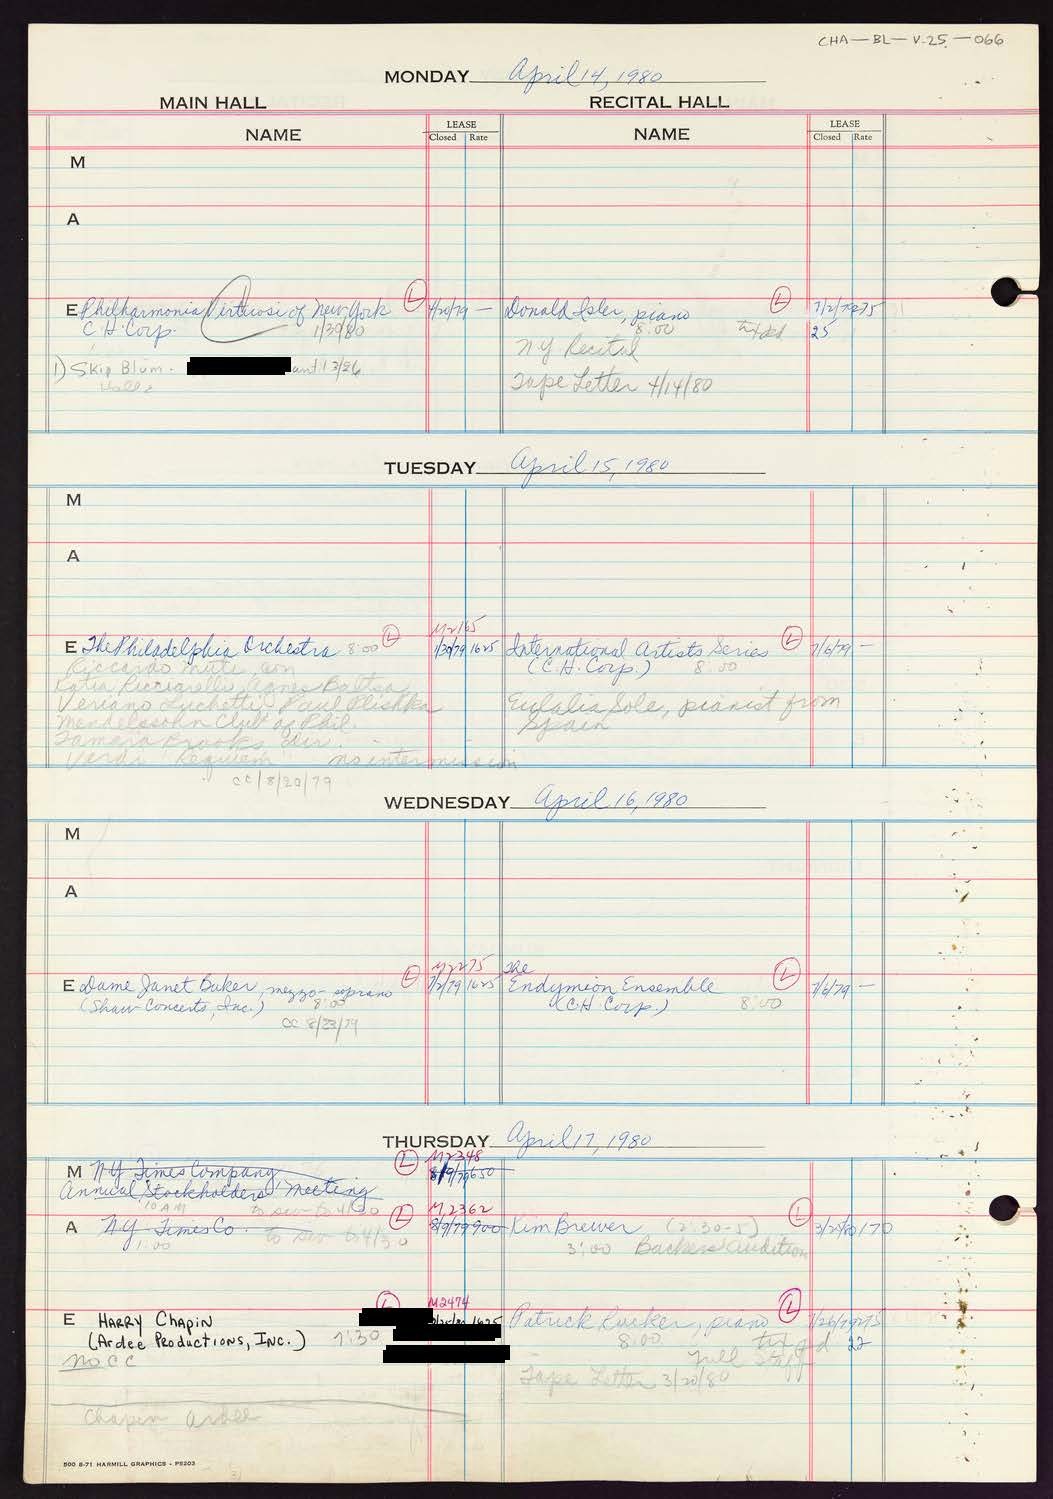 CHA-BL-V-25-066
MONDAY April 14, 1980
MAIN HALL RECITAL HALL
NAME LEASE Closed Rate NAME LEASE Closed Rate
M
A
E Philharmonia Virtuosi of New York (L) 4/20/79 — Donald Isler, piano (L) 7/2/79 275
C.H. Corp. 1/30/80 8:00 txt pd 25
NY Recital
1) Skip Blum - until 3/26
Tape Letter 4/14/80
TUESDAY April 15, 1980
M
A
M2165
E The Philadelphia Orchestra 8:00 (L) 1/30/79 1625 International Artists Series (L) 7/6/79 —
Riccardo Muti, con (C.H. Corp.) 8:00
Katia Ricciarelli, Agnes Baltsa
Veriano Luchetti, Paul Plishka Eulalia Sole, pianist from
Mendelssohn Club of Phil. Spain
Tamara Brooks, dir.
Verdi "Requiem" no intermission
CC/8/20/79
WEDNESDAY April 16, 1980
M
A
M2275 The
E Dame Janet Baker, mezzo-soprano (L) 7/2/79 1625 Endymion Ensemble (L) 7/6/79 —
(Shaw Concerts, Inc.) 8:00 (C.H. Corp.) 8:00
CC 8/23/79
THURSDAY April 17, 1980
M2348
M NY Times Company (L) 8/9/79 650
Annual Stockholders' Meeting
10 AM to sev to 4/30
M2362
A NY Times Co. (L) 8/9/79 900 Kim Brewer (2:30-5) (L) 3/28/80 170
1:00 to sev to 4/30 3:00 Backers' Audition
M2474
E HARRY CHAPIN (L) 1625 Patrick Rucker, piano (L) 7/26/79 275
(Ardee Productions, Inc.) 7:30 8:00 txt pd 22
No CC full staff
Tape Letter 3/20/80
Chapin Ardee
500 8-71 HARMILL GRAPHICS - P5203